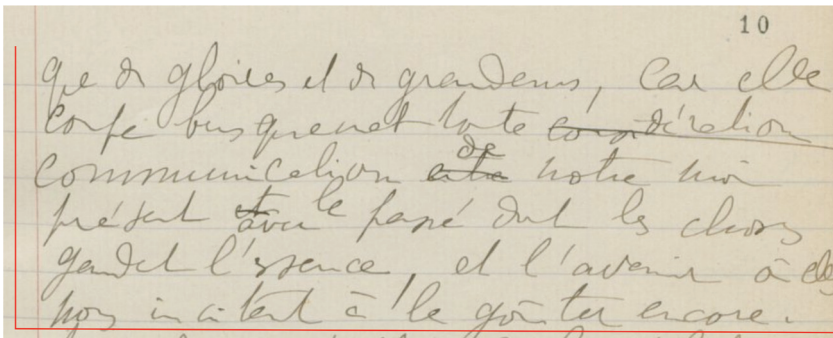 10
que de gloires et de grandeurs, car elle
coupe brusquement toute considération
communication entre de notre moi
présent et avec le passé dont les choses
gardent l'essence, et l'avenir où elles
nous incitent à le goûter encore.